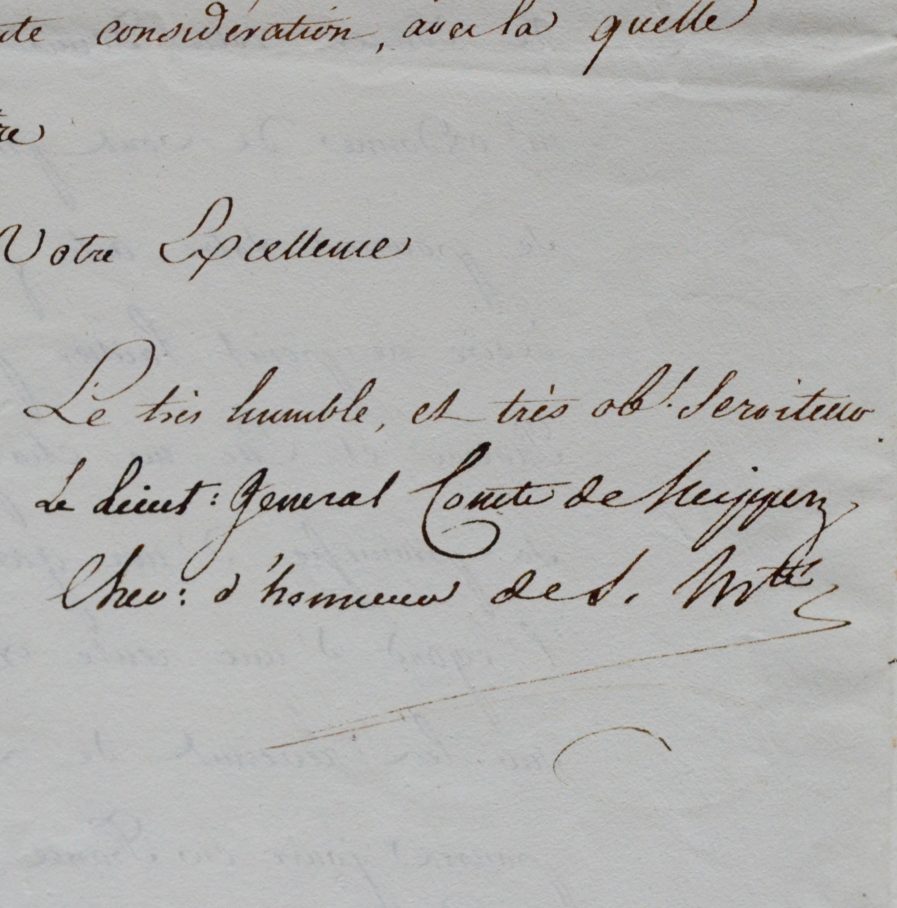 ute considération, avec la quelle
re
Votre Excellence
Le très humble, et très ob.t Serviteur.
Le Lieut: General Comte de Neipperg
Chev: d'honneur de S. Mté